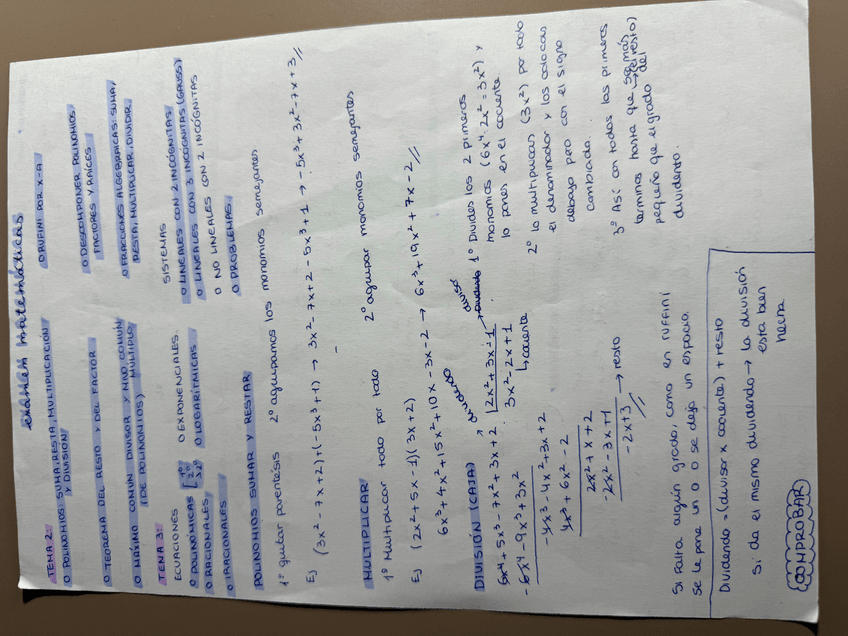 examen matemáticas
TEMA 2:
O POLINOMIOS: SUMA, RESTA, MULTIPLICACIÓN Y DIVISIÓN
O TEOREMA DEL RESTO Y DEL FACTOR
O MÁXIMO COMÚN DIVISOR Y MÍNIMO COMÚN MÚLTIPLO (DE POLINOMIOS)
O RUFINI POR X-A
O DESCOMPONER POLINOMIOS, FACTORES Y RAÍCES
O FRACCIONES ALGEBRAICAS: SUMA, RESTA, MULTIPLICAR, DIVIDIR.
TEMA 3:
ECUACIONES
O POLINÓMICAS [1º 2º
O RACIONALES
O IRRACIONALES
O EXPONENCIALES
O LOGARÍTMICAS
SISTEMAS
O LINEALES CON 2 INCÓGNITAS
O LINEALES CON 3 INCÓGNITAS (GAUSS)
O NO LINEALES CON 2 INCÓGNITAS
O PROBLEMAS.
POLINOMIOS SUMAR Y RESTAR
1º quitar paréntesis 2º agrupamos los monomios semejantes
Ej (3x²-7x+2)+(-5x³+1) → 3x²-7x+2-5x³+1 → -5x³+3x²-7x+3//
MULTIPLICAR
1º Multiplicar todo por todo 2º agrupar monomios semejantes
Ej (2x²+5x-1)(3x+2)
6x³+4x²+15x²+10x-3x-2 → 6x³+19x²+7x-2//
DIVISIÓN (CAJA)
dividendo
divisor
6x⁴+5x³-7x²+3x+2 |2x²+3x-1
-6x⁴-9x³+3x² 3x²-2x+1
cociente
-4x³-4x²+3x+2
4x³+6x²-2
2x²+x+2
-2x²-3x+1
-2x+3 → resto
1º Divides los 2 primeros
monomios (6x⁴:2x²=3x²) y
lo pones en el cociente
2º lo multiplicas (3x²) por todo
el denominador y los colocas
debajo pero con el signo
cambiado.
3º Así con todos los primeros
terminos hasta que sea más
(el resto)
pequeño que el grado del
dividento.
Si falta algún grado, como en ruffini
se le pone un 0 o se deja un espacio.
Dividendo = (divisor x cociente) + resto
Si da el mismo dividendo → la división
esta bien
hecha
COMPROBAR